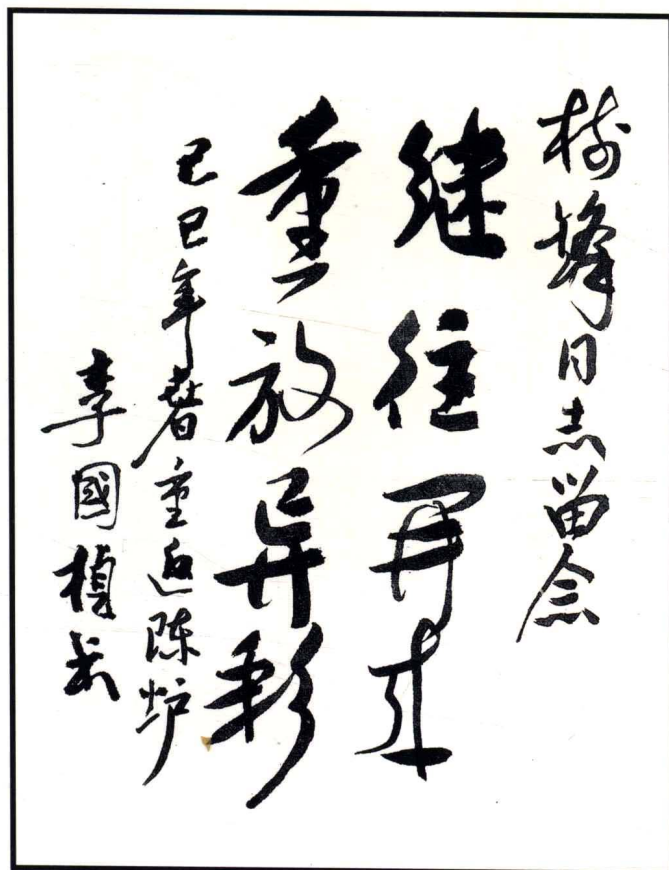 树峰同志留念
继往开来
重放异彩
己巳年春重返陈炉
李國楨书